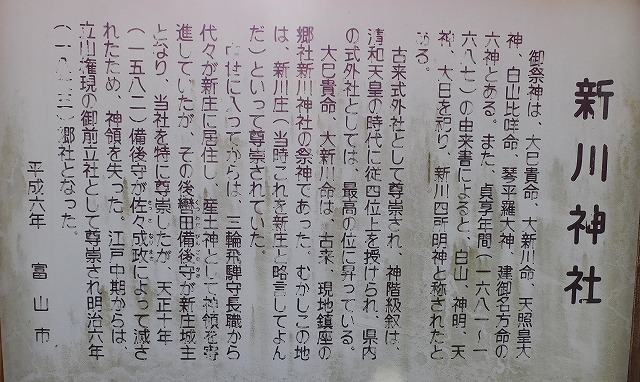 新川神社
御祭神は、大巳貴命、大新川命、天照皇大
神、白山比咩命、琴平羅大神、建御名方命の
六神とある。また、貞享年間(一六八一〜一
六八七)の由来書によると、白山、神明、天
神、大日を祀り、新川四所明神と称されたと
ある。
古来式外社として尊崇され、神階級叙は、
清和天皇の時代に従四位上を授けられ、県内
の式外社としては、最高の位に昇っている。
大巳貴命、大新川命は、古来、現地鎮座の
郷社新川神社の祭神であった。むかしこの地
は、新川庄(当時これを新庄と略言してよん
だ)といって尊崇されていた。
中世に入ってからは、三輪飛騨守長職から
代々が新庄に居住し、産土神として神領を寄
進していたが、その後轡田備後守が新庄城主
となり、当社を特に尊崇したが、天正十年
(一五八二)備後守が佐々成政によって滅さ
れたため、神領を失った。江戸中期からは、
立山権現の御前立社として尊崇され明治六年
(一八七三)郷社となった。
平成六年 富山市